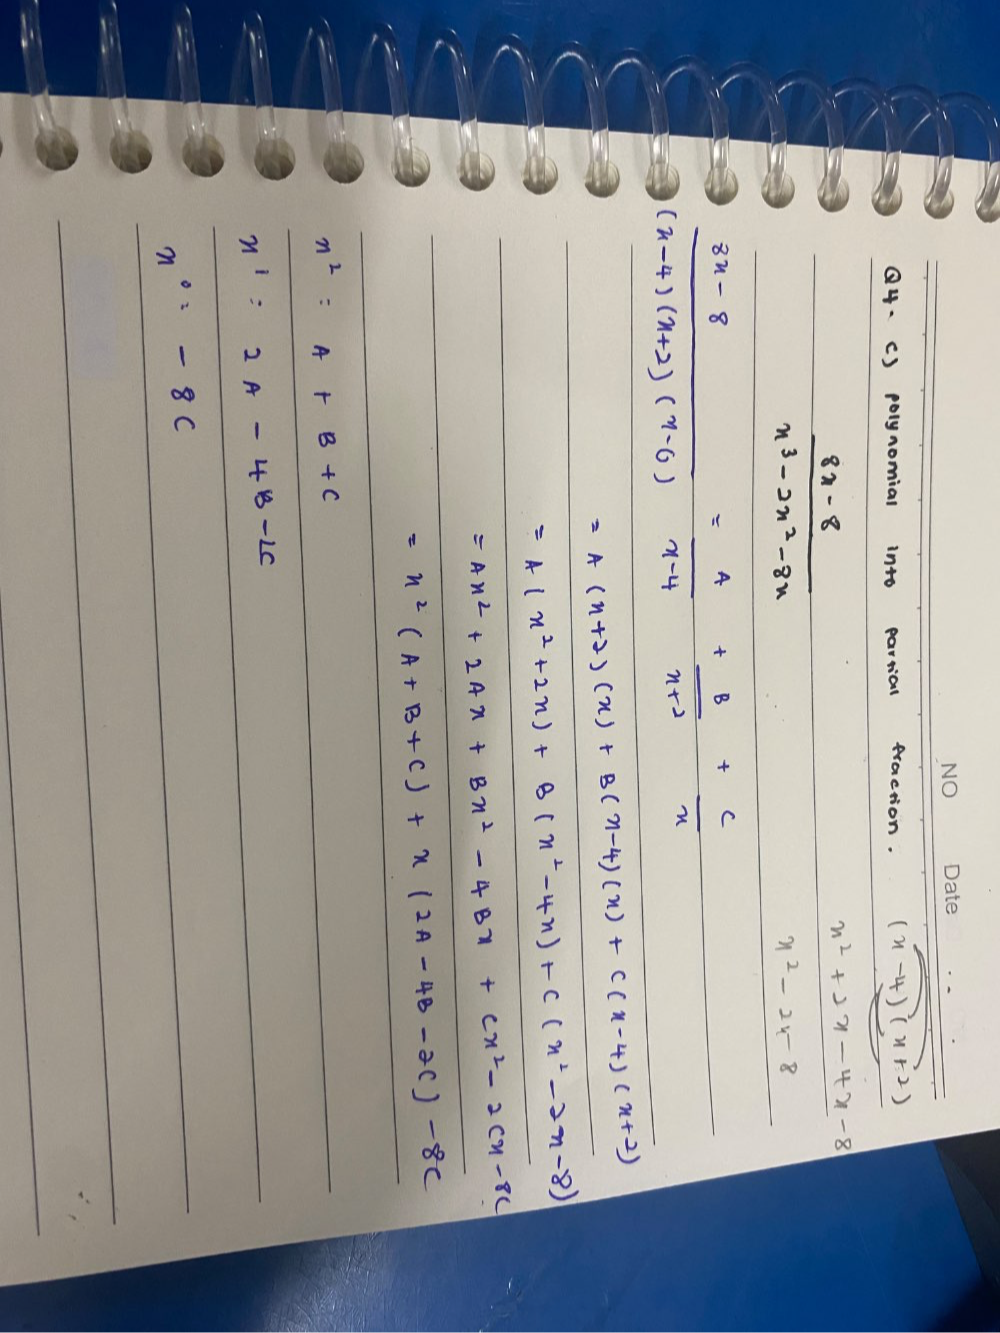 NO Date
Q4. c) polynomial into partial fraction. (x-4)(x+2)
8x-8 x²+2x-4x-8
x³-2x²-8x x²-2x-8
8x-8 = A + B + C
(x-4)(x+2)(x-0) x-4 x+2 x
= A(x+2)(x) + B(x-4)(x) + C(x-4)(x+2)
= A(x²+2x) + B(x²-4x) + C(x²-2x-8)
= Ax² + 2Ax + Bx² - 4Bx + Cx² - 2Cx - 8C
= x²(A+B+C) + x(2A-4B-2C) - 8C
x² : A + B + C
x¹ : 2A - 4B - 2C
x⁰ : - 8C